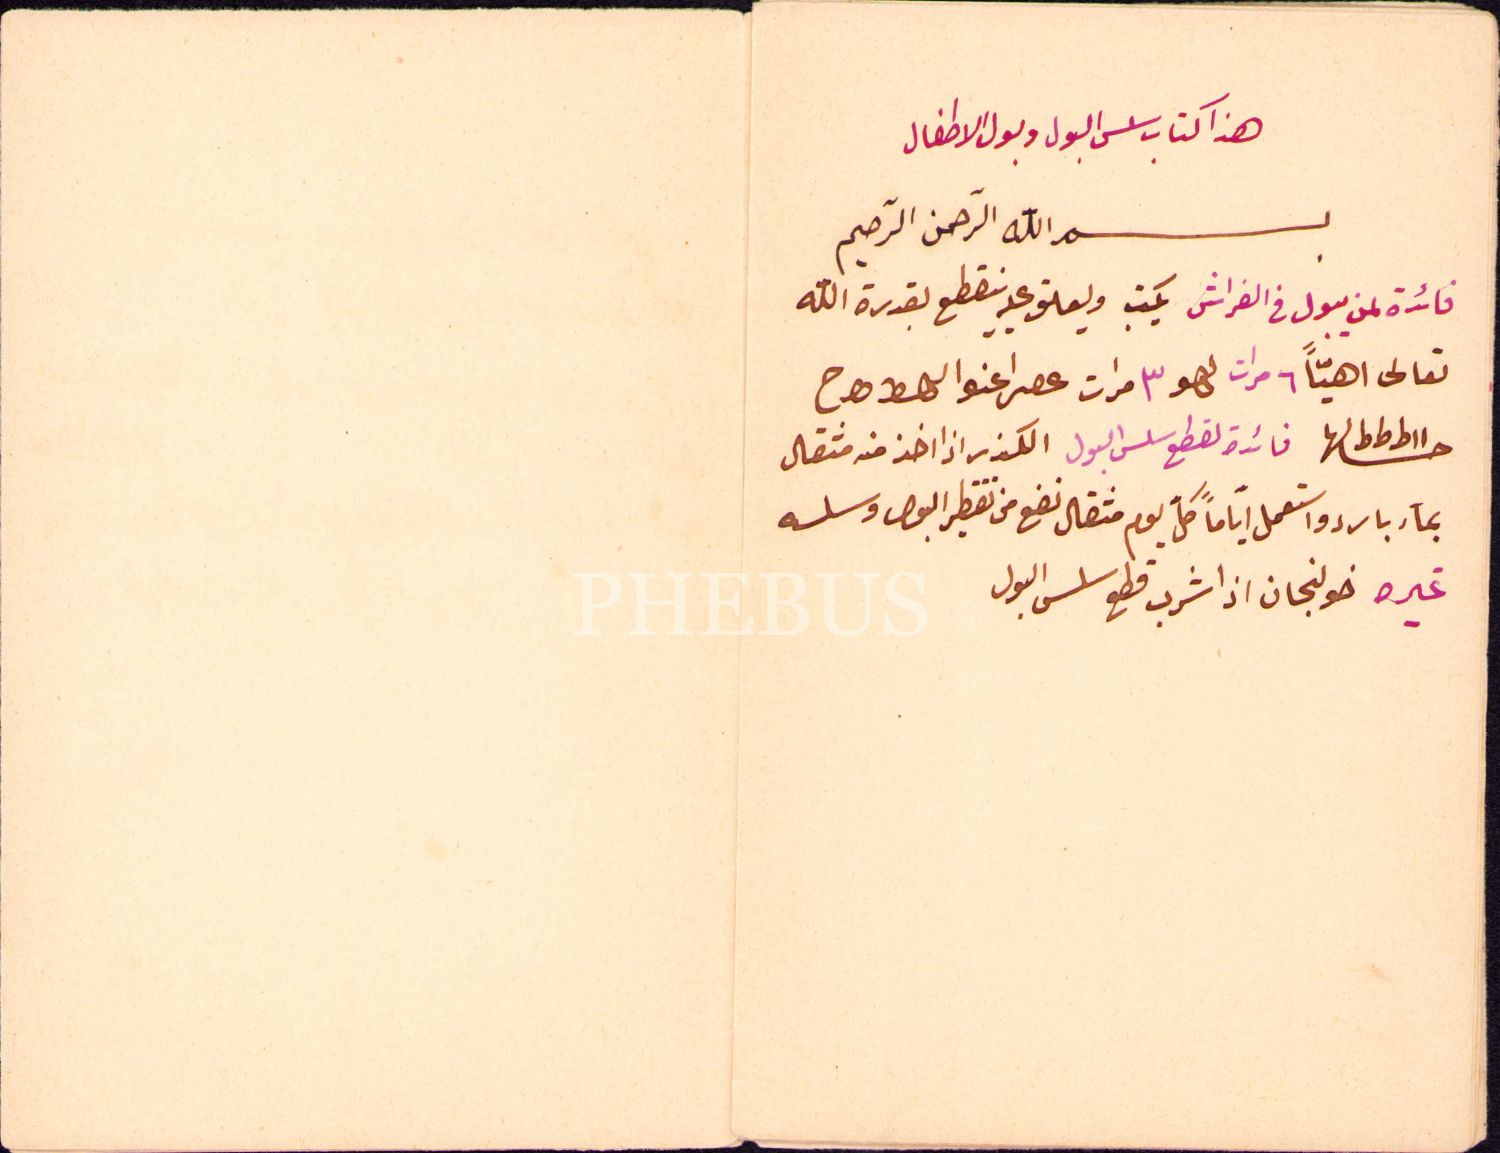 هذا كتاب سلس البول وبول الاطفال
بسم الله الرّحمن الرّحيم
فائدة لمن يبول فى الفراش يكتب ويعلق عليه ينقطع بقدرة الله
تعالى اهيّاً ٦ مرات لهو ٣ مرات
فائدة لقطع سلس البول الكندر اذا اخذ منه مثقال
بماء بارد واستعمل ايّاماً كلّ يوم مثقال نفع من تقطير البول وسلسه
غيره خولنجان اذا شرب قطع سلس البول
PHEBUS